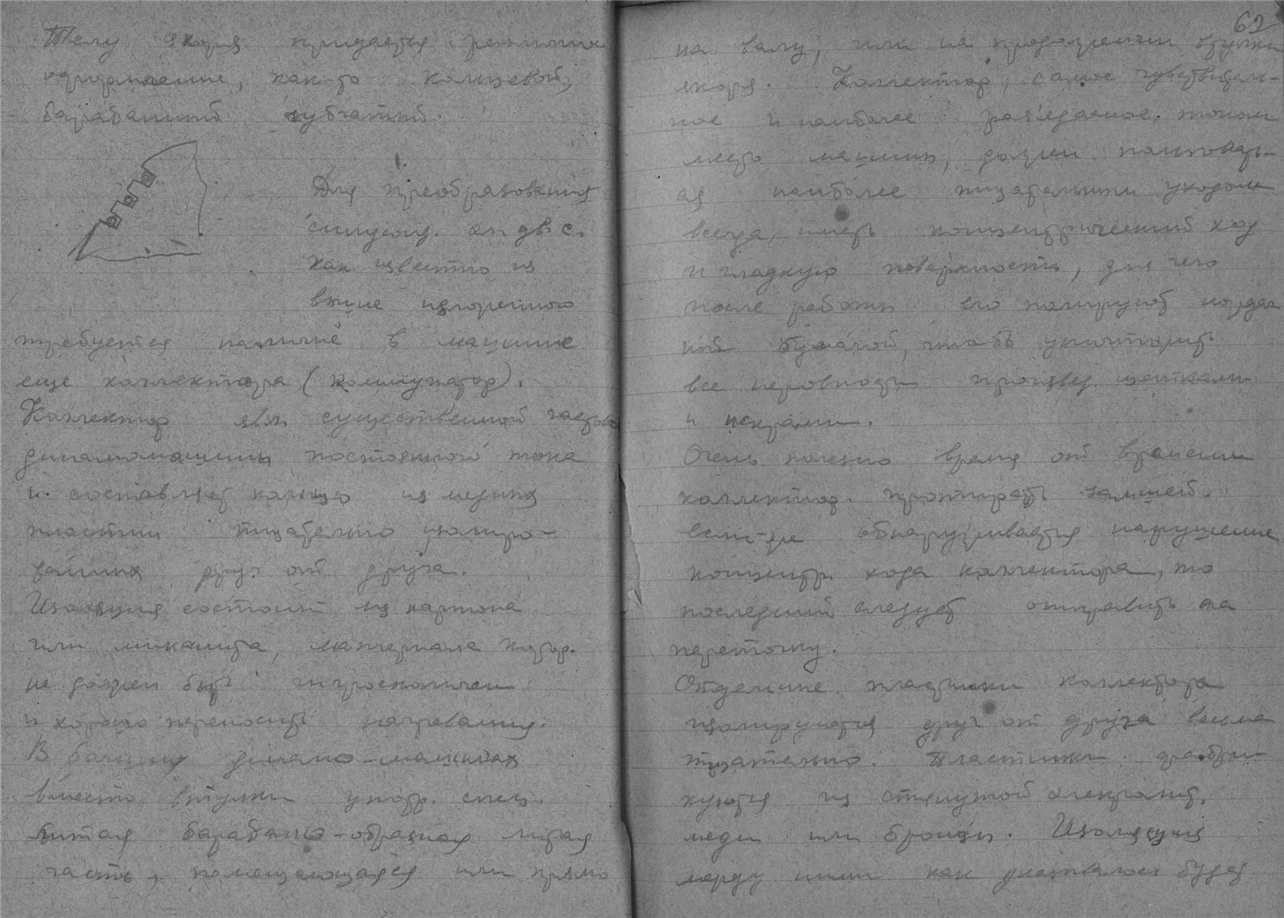 Телу якоря придается различн
оформление, как-то кольцевой,
барабанный зубчатый.
Для преобразования
синусоид. эл дв. с.
как известно из
выше изложенного
требуется наличие в машине
еще коллектора (коммутатор).
Коллектор явл. существенной частью
динамомашины постоянного тока
и составляет кольцо из медных
пластин тщательно изолиро-
ванных друг от друга.
Изоляция состоит из картона
или миканита, материала котор.
не должен быть гигроскопичен
и хорошо переносить нагревание.
В больших динамо-машинах
вместо втулки употр. спец.
литая барабано-образная литая
часть, помещающаяся или прямо
62
на валу, или на продолжении втулки
якоря. Коллектор, самое чувствитель-
ное и наиболее разъедаемое током
место машины, должен пользовать-
ся наиболее тщательным уходом
всегда иметь концентрический ход
и гладкую поверхность, для чего
после работы его полируют наждач
ной бумагой, чтобы уничтожить
все неровности произвед. щетками
и искрами.
Очень полезно время от времени
коллектор протирать замшей.
Если-же обнаруживается нарушение
концентр. хода коллектора, то
последний следует отправить на
переточку.
Отдельные пластинки коллектора
изолируются друг от друга весьма
тщательно. Пластинки фабри-
куются из тянутой электролит.
меди или бронзы. Изоляция
между ними как указывалось будет